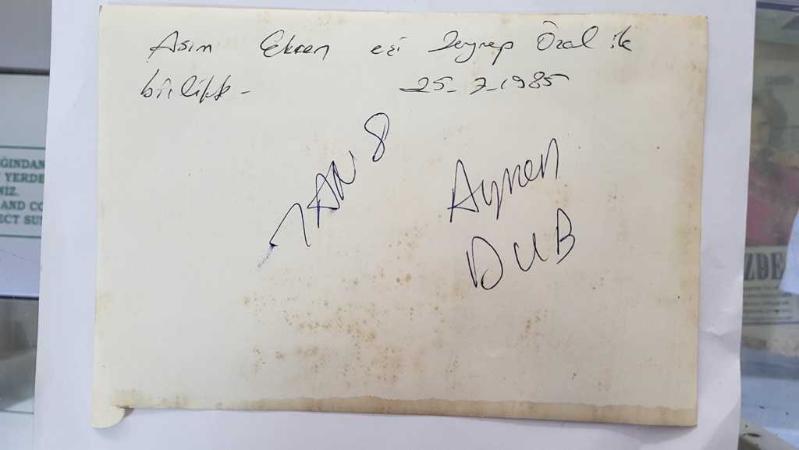 Asım Ekren eşi Zeynep Özal ile
birlikte
25-7-1985
TAN 8
Aynen
DUB
ĞINDAN
YERDE
NİZ.
AND CO
ECT SU
ZDE